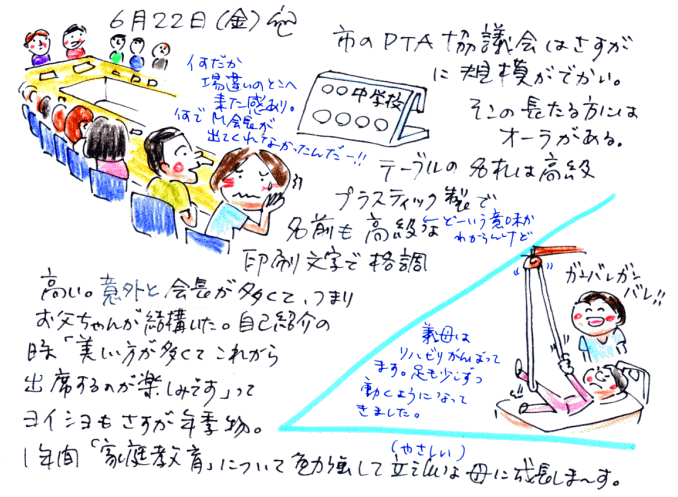 6月22日(金)
市のPTA協議会はさすが
に規模がでかい。
そこの長たる方には
オーラがある。
テーブルの名札は高級
プラスティック製で
名前も高級な
どーいう意味か
わからんけど
印刷文字で格調
高い。意外と会長が多くて、つまり
お父ちゃんが結構いた。自己紹介の
時「美しい方が多くてこれから
出席するのが楽しみです」って
ヨイショもさすが年季物。
1年間「家庭教育」について勉強して立派な母に成長しま〜す。
(やさしい)
何だか
場違いのとこへ
来た感あり。
何でM会長が
出てくれなかったんだー!!
○○中学校
○○○○
ガンバレガン
バレ!!
義母は
リハビリがんばって
ます。足も少しずつ
動くようになって
きました。